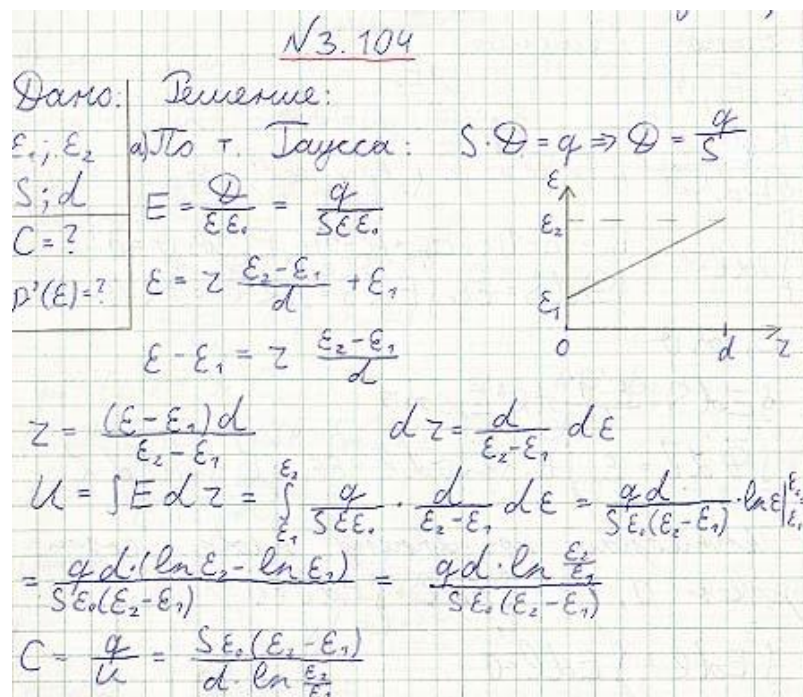 №3.104
Дано: Решение:
ε₁; ε₂ а) По т. Гаусса: S·D = q ⇒ D = q/S
S; d E = D/(εε₀) = q/(Sεε₀)
C = ?
ρ'(ε) = ? ε = z (ε₂-ε₁)/d + ε₁
ε
ε₂
ε₁
0 d z
ε - ε₁ = z (ε₂-ε₁)/d
z = (ε-ε₁)d/(ε₂-ε₁) dz = d/(ε₂-ε₁) dε
U = ∫E dz = ∫_{ε₁}^{ε₂} q/(Sεε₀) · d/(ε₂-ε₁) dε = qd/(Sε₀(ε₂-ε₁)) · ln ε|_{ε₁}^{ε₂} =
= qd·(ln ε₂ - ln ε₁)/(Sε₀(ε₂-ε₁)) = qd·ln(ε₂/ε₁)/(Sε₀(ε₂-ε₁))
C = q/U = Sε₀(ε₂-ε₁)/(d·ln(ε₂/ε₁))